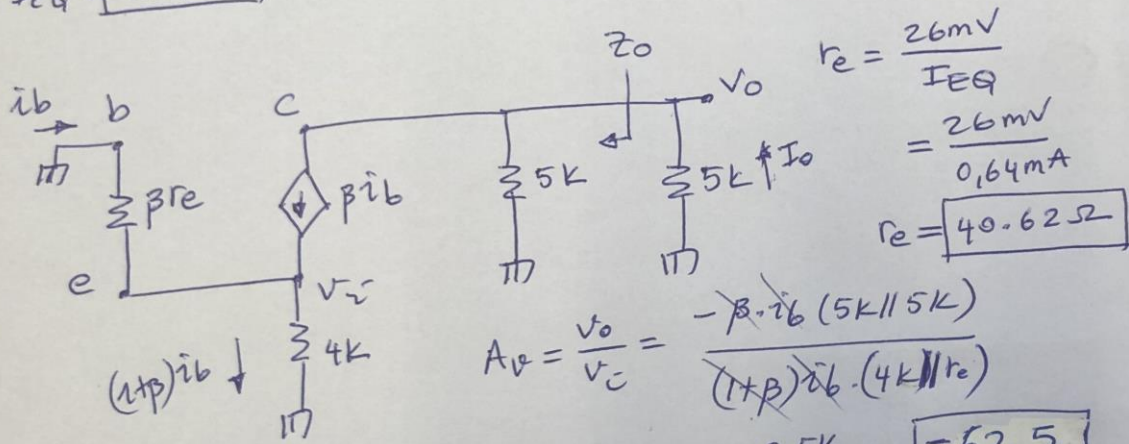 Zo
Vo
ib
b
c
re = 26mV / IEQ
= 26mV / 0,64mA
re = 40.62 Ω
βre
βib
5k
5k
Io
e
vi
(1+β)ib
4k
Av = vo / vi = -β.ib (5k//5k) / (1+β)ib.(4k//re)